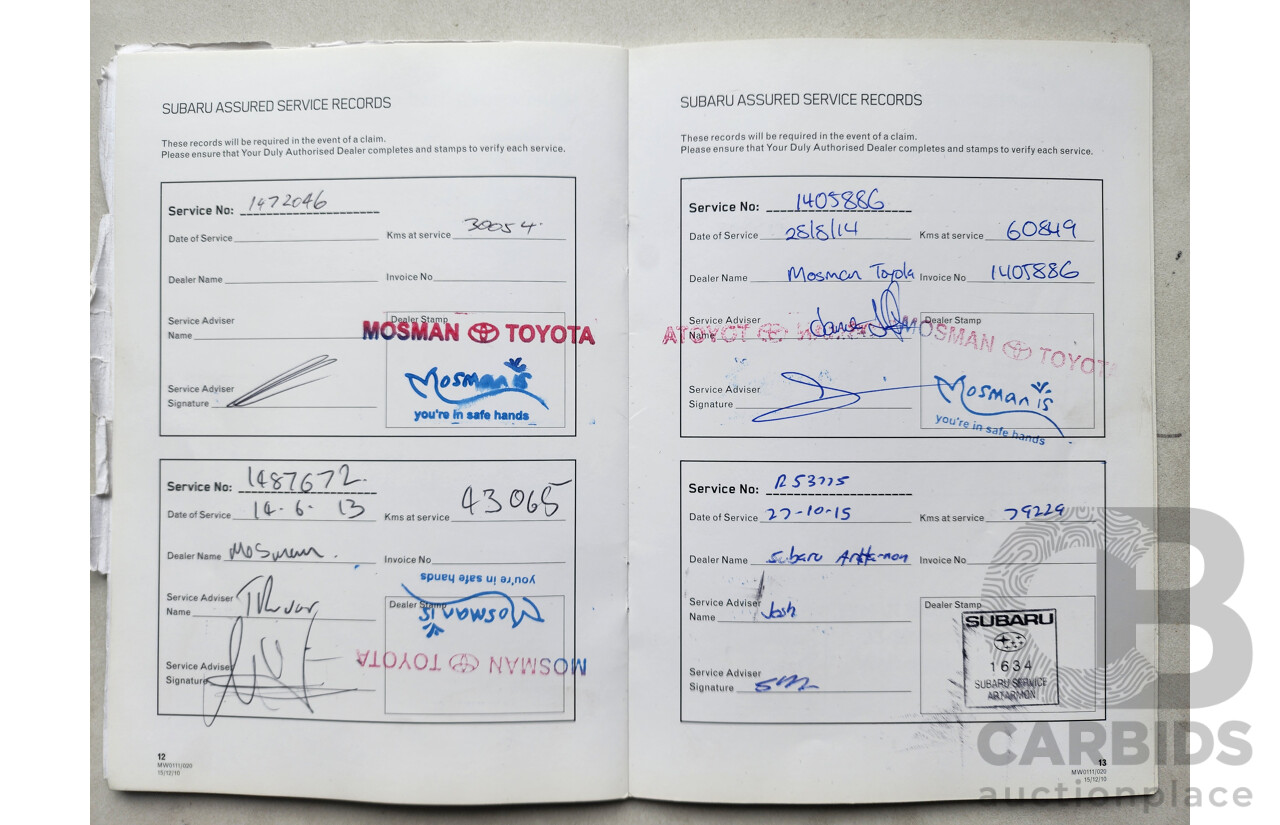 SUBARU ASSURED SERVICE RECORDS
These records will be required in the event of a claim.
Please ensure that Your Duly Authorised Dealer completes and stamps to verify each service.
Service No: 1472046
Date of Service
Kms at service 30054
Dealer Name
Invoice No
Service Adviser
Name
Dealer Stamp
MOSMAN TOYOTA
Mosman is
you're in safe hands
Service Adviser
Signature
Service No: 1487672
Date of Service 14-6-13
Kms at service 43065
Dealer Name Mosman
Invoice No
you're in safe hands
Mosman is
Service Adviser
Name
Dealer Stamp
MOSMAN TOYOTA
Service Adviser
Signature
12
MW0111/020
15/12/10
SUBARU ASSURED SERVICE RECORDS
These records will be required in the event of a claim.
Please ensure that Your Duly Authorised Dealer completes and stamps to verify each service.
Service No: 1405886
Date of Service 28/8/14
Kms at service 60849
Dealer Name Mosman Toyota
Invoice No 1405886
Service Adviser
Name
Dealer Stamp
MOSMAN TOYOTA
Mosman is
you're in safe hands
Service Adviser
Signature
Service No: R53775
Date of Service 27-10-15
Kms at service 79229
Dealer Name Subaru Artarmon
Invoice No
Service Adviser
Name Josh
Dealer Stamp
SUBARU
1634
SUBARU SERVICE
ARTARMON
Service Adviser
Signature
13
MW0111/020
15/12/10
CB
CARBIDS
auctionplace